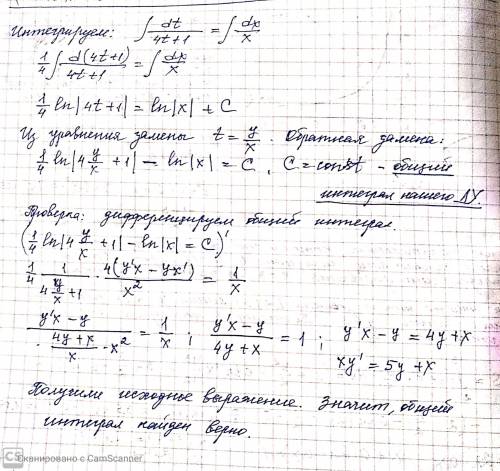 Интегрируем: ∫ dt/(4t+1) = ∫ dx/x
1/4 ∫ d(4t+1)/(4t+1) = ∫ dx/x
1/4 ln|4t+1| = ln|x| + C
Из уравнения замены t = y/x. Обратная замена:
1/4 ln|4 y/x + 1| - ln|x| = C, C = const - общий
интеграл нашего ДУ.
Проверка: дифференцируем общий интеграл.
(1/4 ln|4 y/x + 1| - ln|x| = C)'
1/4 · 1/(4 y/x + 1) · 4(y'x - yx')/x² = 1/x
(y'x - y)/((4y+x)/x · x²) = 1/x ; (y'x - y)/(4y+x) = 1 ; y'x - y = 4y + x
xy' = 5y + x
Получили исходное выражение. Значит, общий
интеграл найден верно.
CS Сканировано с CamScanner